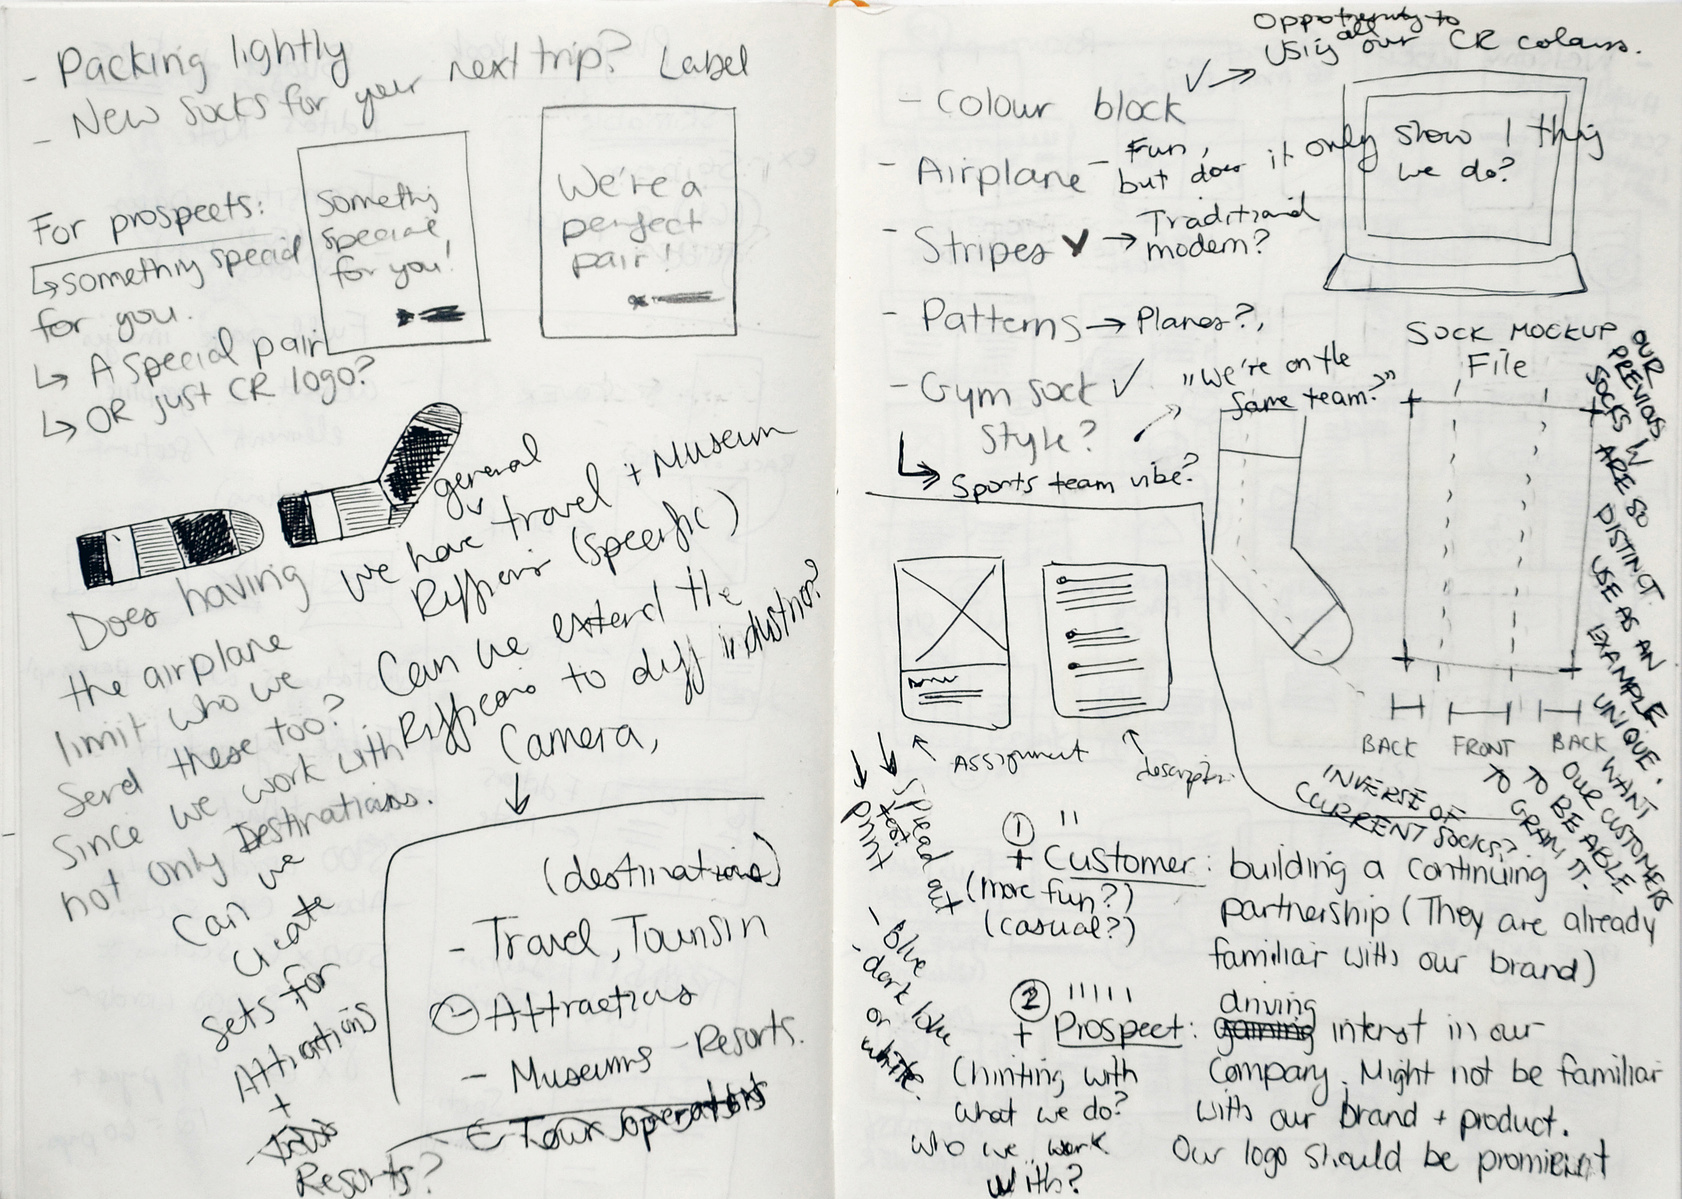 - Packing lightly
- New socks for your next trip? Label
For prospects:
↳ something special
for you.
↳ A special pair
↳ OR just CR logo?
Somethig
special
for you!
We're a
perfect
pair!
Does having
the airplane
limit who we
send these too?
Since we work with
not only Destinations.
Can we
create
sets for
Attractions
+
Resorts?
general
we have travel + Museum
(specific)
Can we extend the
to diff industries?
Camera,
(destinations)
- Travel, Tourism
Attractions
- Museums - Resorts.
Tour operators
Opportunity to
using all our CR colours.
- Colour block ✓ →
- Airplane - Fun,
but does it only show 1 thing
we do?
- Stripes ✓ → Traditional
modern?
- Patterns → Planes?,
- Gym sock ✓
Style?
"We're on the
same team?"
↳ Sports team vibe?
SOCK MOCKUP
File
BACK FRONT BACK
INVERSE OF
CURRENT SOCKS?
OUR
PREVIOUS
SOCKS W
ARE SO
DISTINCT.
USE AS AN
EXAMPLE
UNIQUE.
WANT
OUR CUSTOMERS
TO BE ABLE
TO GRAM IT.
Assignment
description
spread out
test
print
- blue
- dark blue
or
white.
① "
+ Customer: building a continuing
(more fun?) partnership (They are already
(casual?) familiar with our brand)
② driving
+ Prospect: gaining interest in our
(hinting with Company. Might not be familiar
what we do? with our brand + product.
who we work Our logo should be prominent
with?